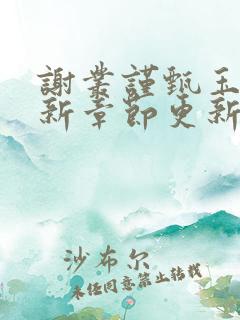 謝叢謹甄玉
新章即更新
沙布尔
未经同意禁止转载